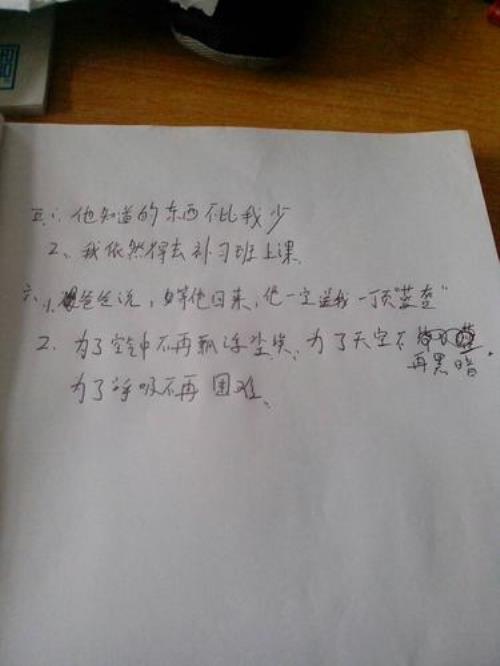 五、1、他知道的东西不比我少
2、我依然得去补习班上课
六、1、爸爸说,等他回来,他一定送我一顶"蓝
2、为了空气中不再飘浮尘埃、为了天空不
再黑暗.
为了呼吸不再困难、